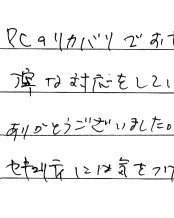 PCのリカバリでお
寧な対応をしてい
ありがとうございました。
セキュリティには気をつけ